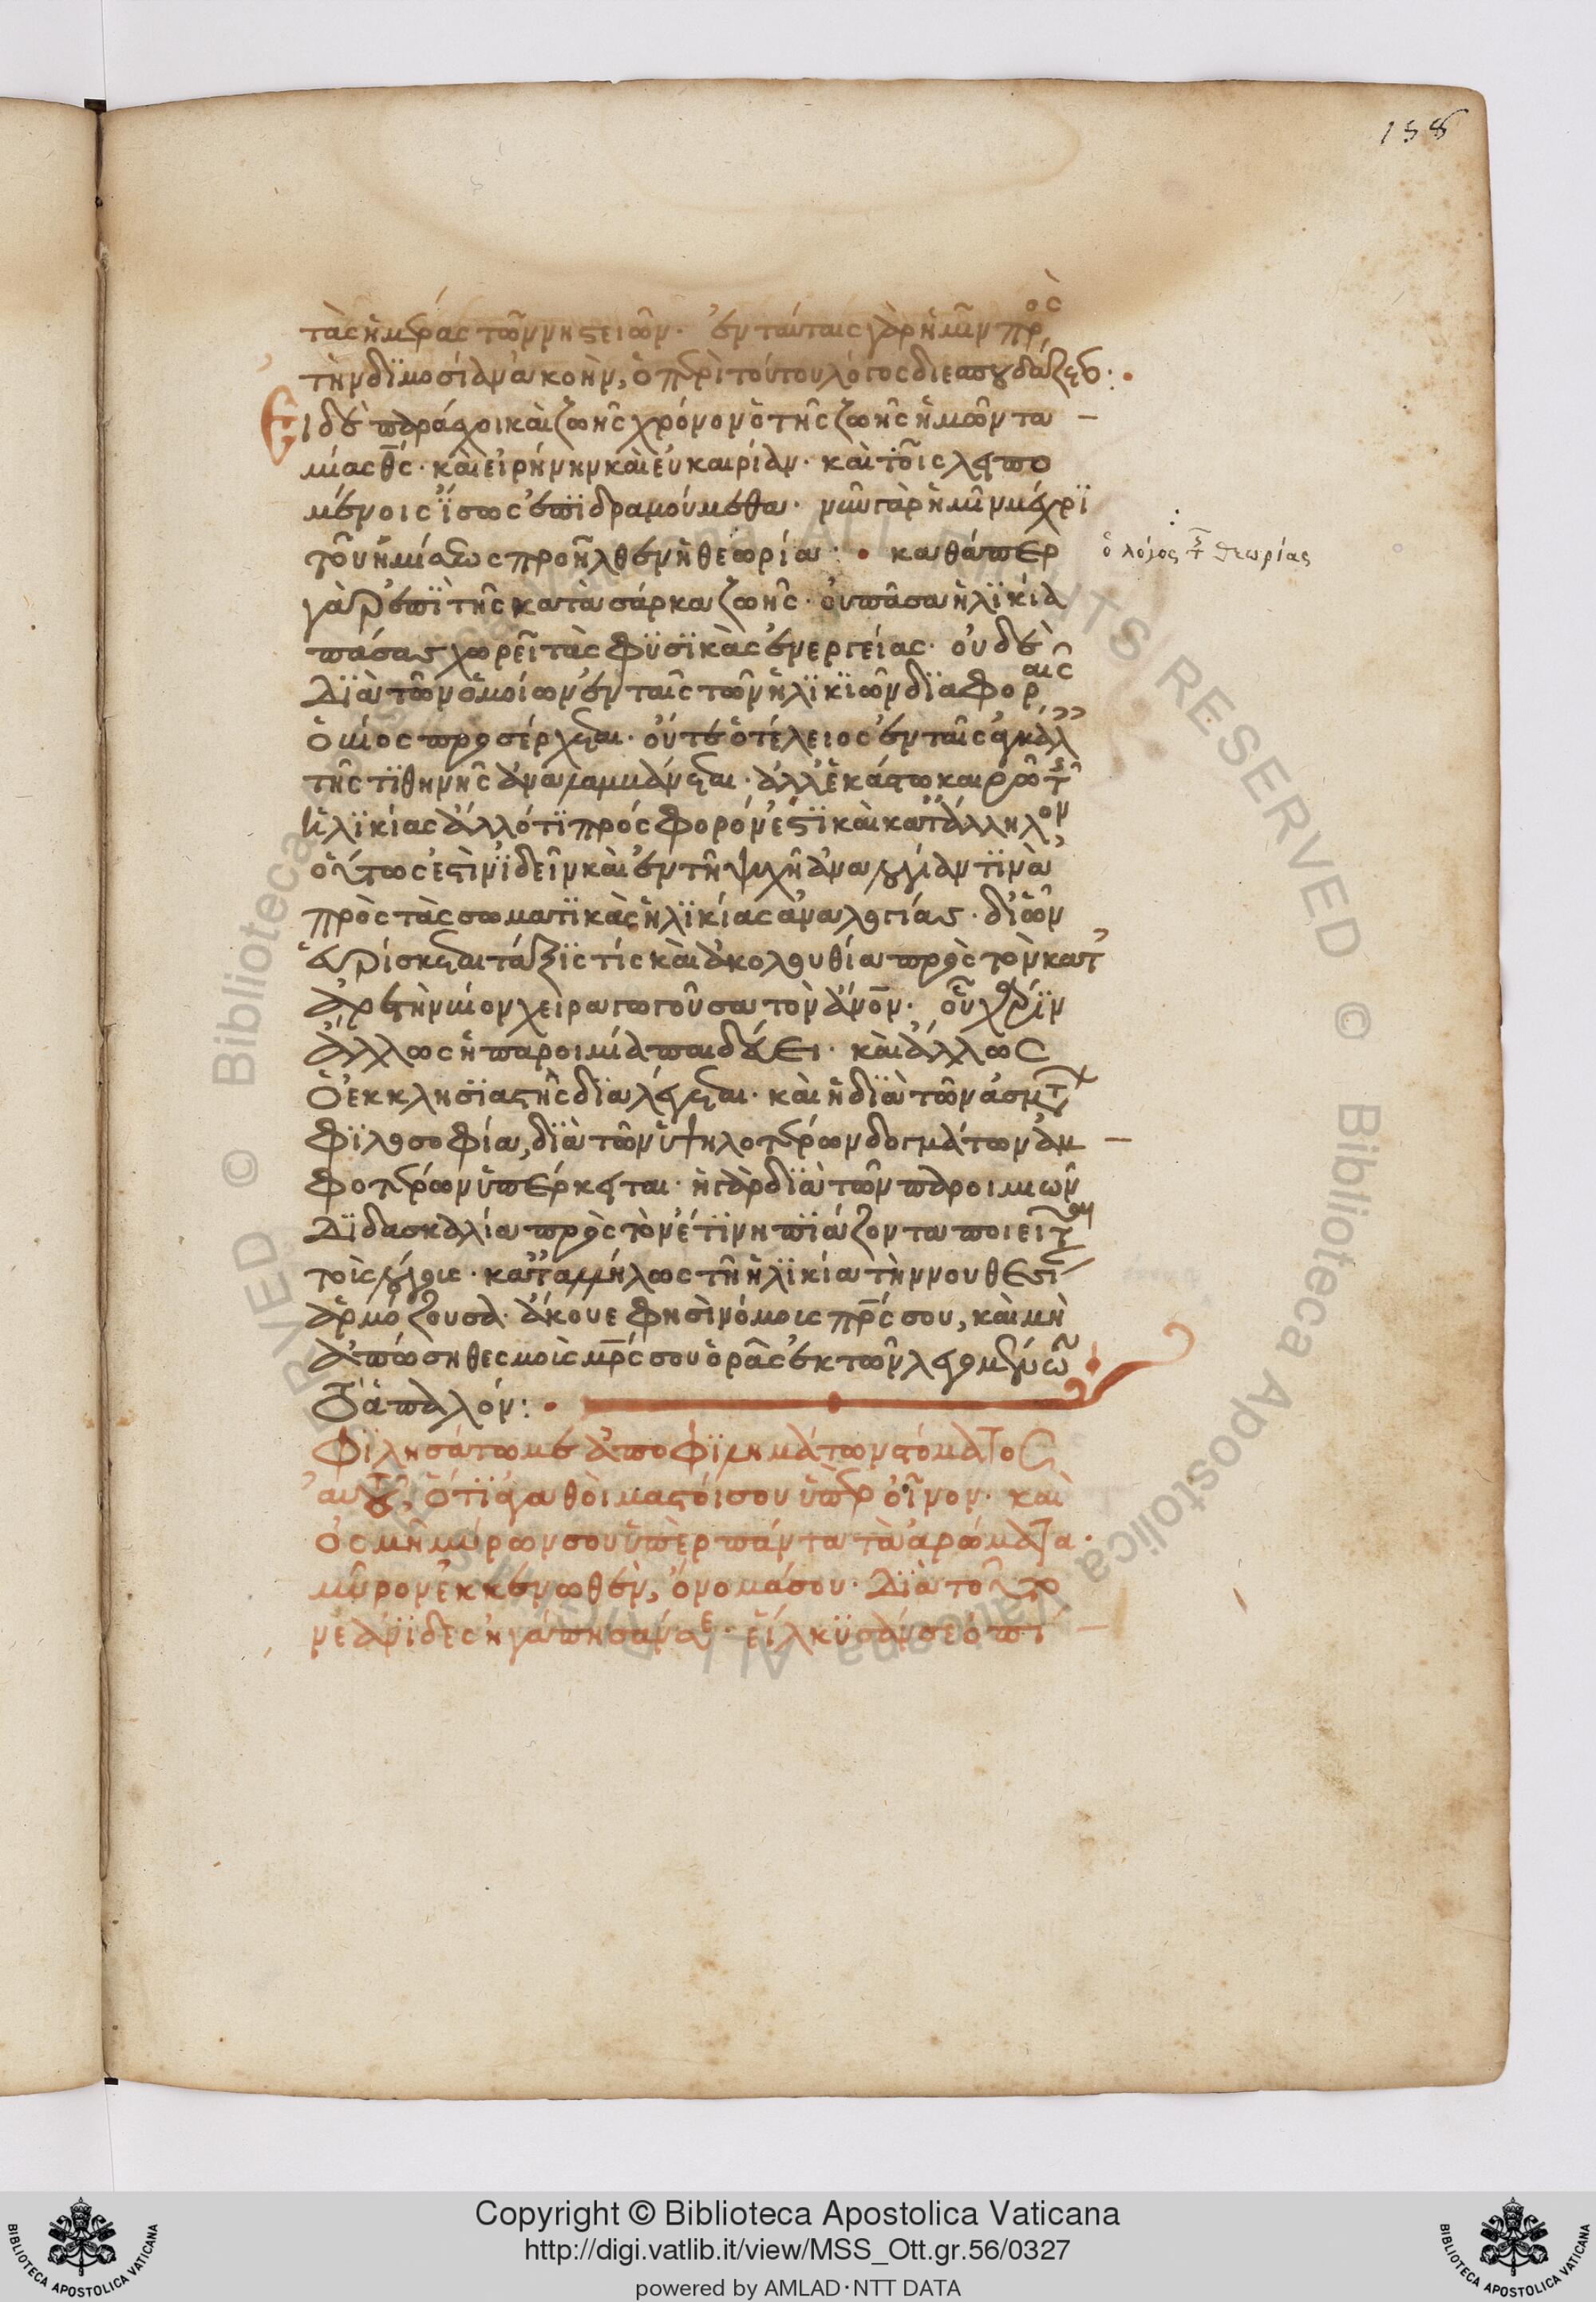 158
τὰς ἡμέρας τῶν νηστειῶν· ἐν ταύταις γὰρ ἡμῖν πρὸς
τὴν δϊμοσίαν ἀκοὴν, ὁ περὶ τούτου λόγος διεσπουδάζετο·
Εἰ δὲ παράσχοι καὶ ζωῆς χρόνον ὁ τῆς ζωῆς ἡμῶν τα
μίας θς· καὶ εἰρήνην καὶ εὐκαιρίαν· καὶ τοῖς λειπο
μένοις ἴσως ἐπϊδραμούμεθα· νῦν γὰρ ἡμῖν μέχρϊ
τοῦ ἡμίσεως προῆλθεν ἡ θεωρία: • καθάπερ
ὁ λόγος τῆς θεωρίας
γὰρ ἐπῒ τῆς κατὰ σάρκα ζωῆς· οὐ πᾶσα ἡλϊκία
πάσας χωρεῖ τὰς φϋσϊκὰς ἐνεργείας· οὐδὲ
Δϊὰ τῶν ὁμοίων ἐν ταῖς τῶν ἡλϊκϊῶν δϊαφοραῖς
ὁ βίος προσέρχεται· οὔτε ὁ τέλειος ἐν ταῖς ἀγκάλαις
τῆς τϊθηνῆς ἀναλαμβάνεται· ἀλλ' ἑκάστω καιρῶ τῆς
ἡλϊκίας ἄλλό τϊ πρόσφορόν ἐστϊ καὶ κατάλληλον,
οὕτως ἐστὶν ἰδεῖν καὶ ἐν τῆ ψυχῆ ἀναλογίαν τϊνὰ
πρὸς τὰς σωματϊκὰς ἡλϊκίας ἀναλογίας· δι' ὧν
εὑρίσκεται τάξϊς τίς καὶ ἀκολουθία πρὸς τὸν κατ'
ἀρετὴν βίον χειραγωγοῦσα τὸν ἄνον· οὗ χάρϊν
ἄλλως ἡ παροιμία παιδεύει· καὶ ἄλλως
ὁ ἐκκλησϊαστὴς δϊαλέγεται· καὶ ἡ δϊὰ τῶν ἀσμάτων
φϊλοσοφία, δϊὰ τῶν ὑψηλοτέρων δογμάτων ἀμ
φοτέρων ὑπέρκειται· ἡ γὰρ δϊὰ τῶν παροιμιῶν
Δϊδασκαλία πρὸς τὸν ἔτϊ νηπϊάζοντα ποιεῖται
τοὺς λόγους· καταλλήλως τῆ ἡλϊκία τὴν νουθεσίαν
ἁρμόζουσα· ἄκουε φησὶ νόμους πρς σου, καὶ μὴ
ἀπώση θεσμοὺς μρς σου ὁρᾶς ἐκ τῶν λεγομένων
τὸ ἁπαλόν: •
Φϊλησάτω με ἀπὸ φϊλημάτων στόματος
αὐτοῦ, ὅτϊ ἀγαθοὶ μαστοί σου ὑπὲρ οἶνον· καὶ
ὀσμὴ μύρων σου ὑπὲρ πάντα τὰ ἀρώματα·
μῦρον ἐκκενωθὲν, ὄνομά σου· Δϊὰ τοῦτο
νεάνϊδες ἠγάπησάν σε· εἵλκϋσάν σε ὀπί
Copyright © Biblioteca Apostolica Vaticana
http://digi.vatlib.it/view/MSS_Ott.gr.56/0327
powered by AMLAD·NTT DATA